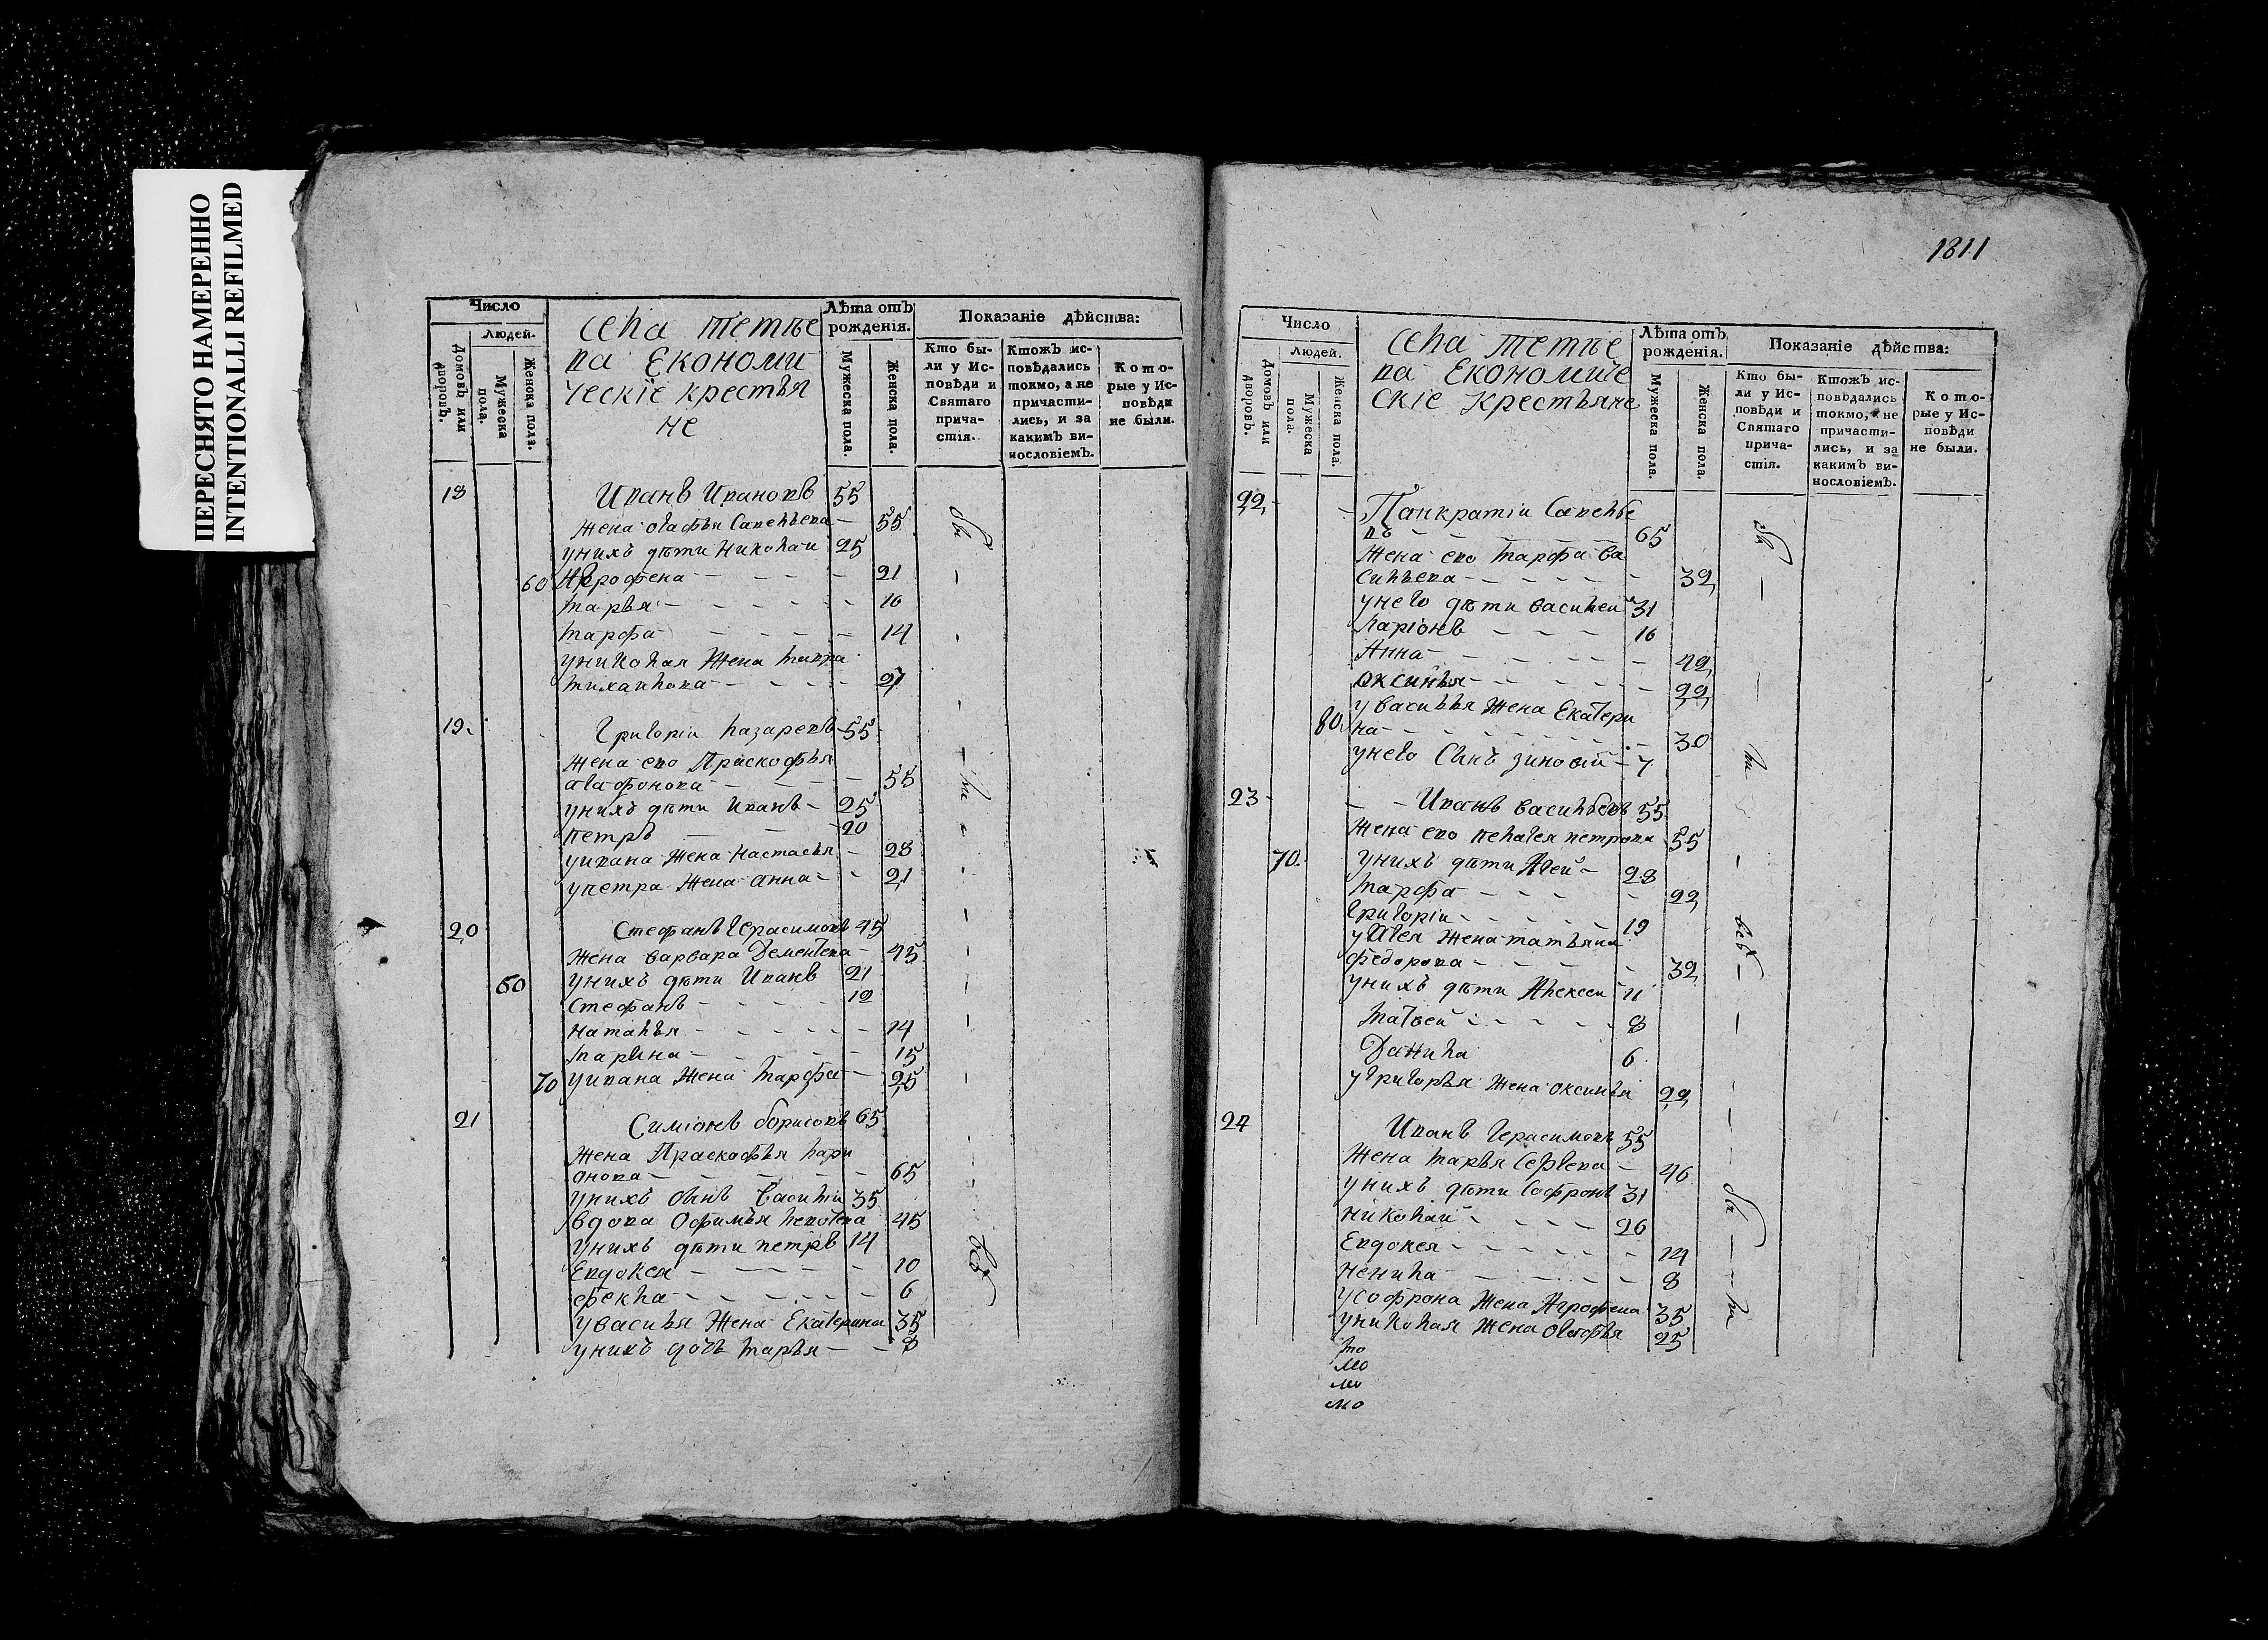 ПЕРЕСНЯТО НАМЕРЕННО
INTENTIONALLI REFILMED
1811
Число
Людей.
Домовъ или дворовъ.
Мужеска пола.
Женска пола.
села тетње
ва Економи
ческіе крестья
не
Лѣта отъ рожденія.
Мужеска пола.
Женска пола.
Показаніе дѣйства:
Кто были у Исповѣди и Святаго причастія.
Ктожъ исповѣдались токмо, а не причастились, и за какимъ винословіемъ.
Которые у Исповѣди не были.
18 Иванъ Ивановъ 55
жена Агафья Савельева 55
унихъ дѣти Николаи 25
60 Агрофена 21
марья 16
марфа 14
униколая жена мавра
михаилова 27
19 Григоріи лазаревъ 55
жена ево Праскофья
агафонова 55
унихъ дѣти Иванъ 25
петръ 20
уивана жена настасья 28
упетра жена анна 21
20 Стефанъ Герасимовъ 45
жена варвара Дементева 45
60 унихъ дѣти Иванъ 21
Стефанъ 12
наталья 14
марина 15
70 уивана жена марфа 25
21 Симіонъ борисовъ 65
жена Праскофья лари
онова 65
унихъ сынъ василіи 35
вдова Офимья 45
унихъ дѣти петръ 14
Евдокея 10
фекла 6
увасилья жена Екатерина 35
унихъ дочь марья 8
Число
Людей.
Домовъ или дворовъ.
Мужеска пола.
Женска пола.
села тетње
ва Економиче
скіе крестьяне
Лѣта отъ рожденія.
Мужеска пола.
Женска пола.
Показаніе дѣйства:
Кто были у Исповѣди и Святаго причастія.
Ктожъ исповѣдались токмо, а не причастились, и за какимъ винословіемъ.
Которые у Исповѣди не были.
22 Панкратіи Савелье
въ 65
жена ево марфа ва
сильева 32
унего дѣти василеи 31
ларіонъ 16
Анна 42
Оксинья 22
увасилья жена Екатери
80 на 30
унего Сынъ зиновій 7
23 Иванъ васильевъ 55
жена ево пелагея петрова 55
70 унихъ дѣти Агей 28
марфа 22
григоріи 19
уАгея жена татьяна
федорова 32
унихъ дѣти Алексеи 11
матвеи 8
Данила 6
угригорья жена оксинья 22
24 Иванъ Герасимовъ 55
жена марья 46
унихъ дѣти Софронъ 31
николаи 26
Евдокея 14
ненила 8
усофрона жена Агрофена 35
униколая жена Агафья 25
мо
мо
мо
мо